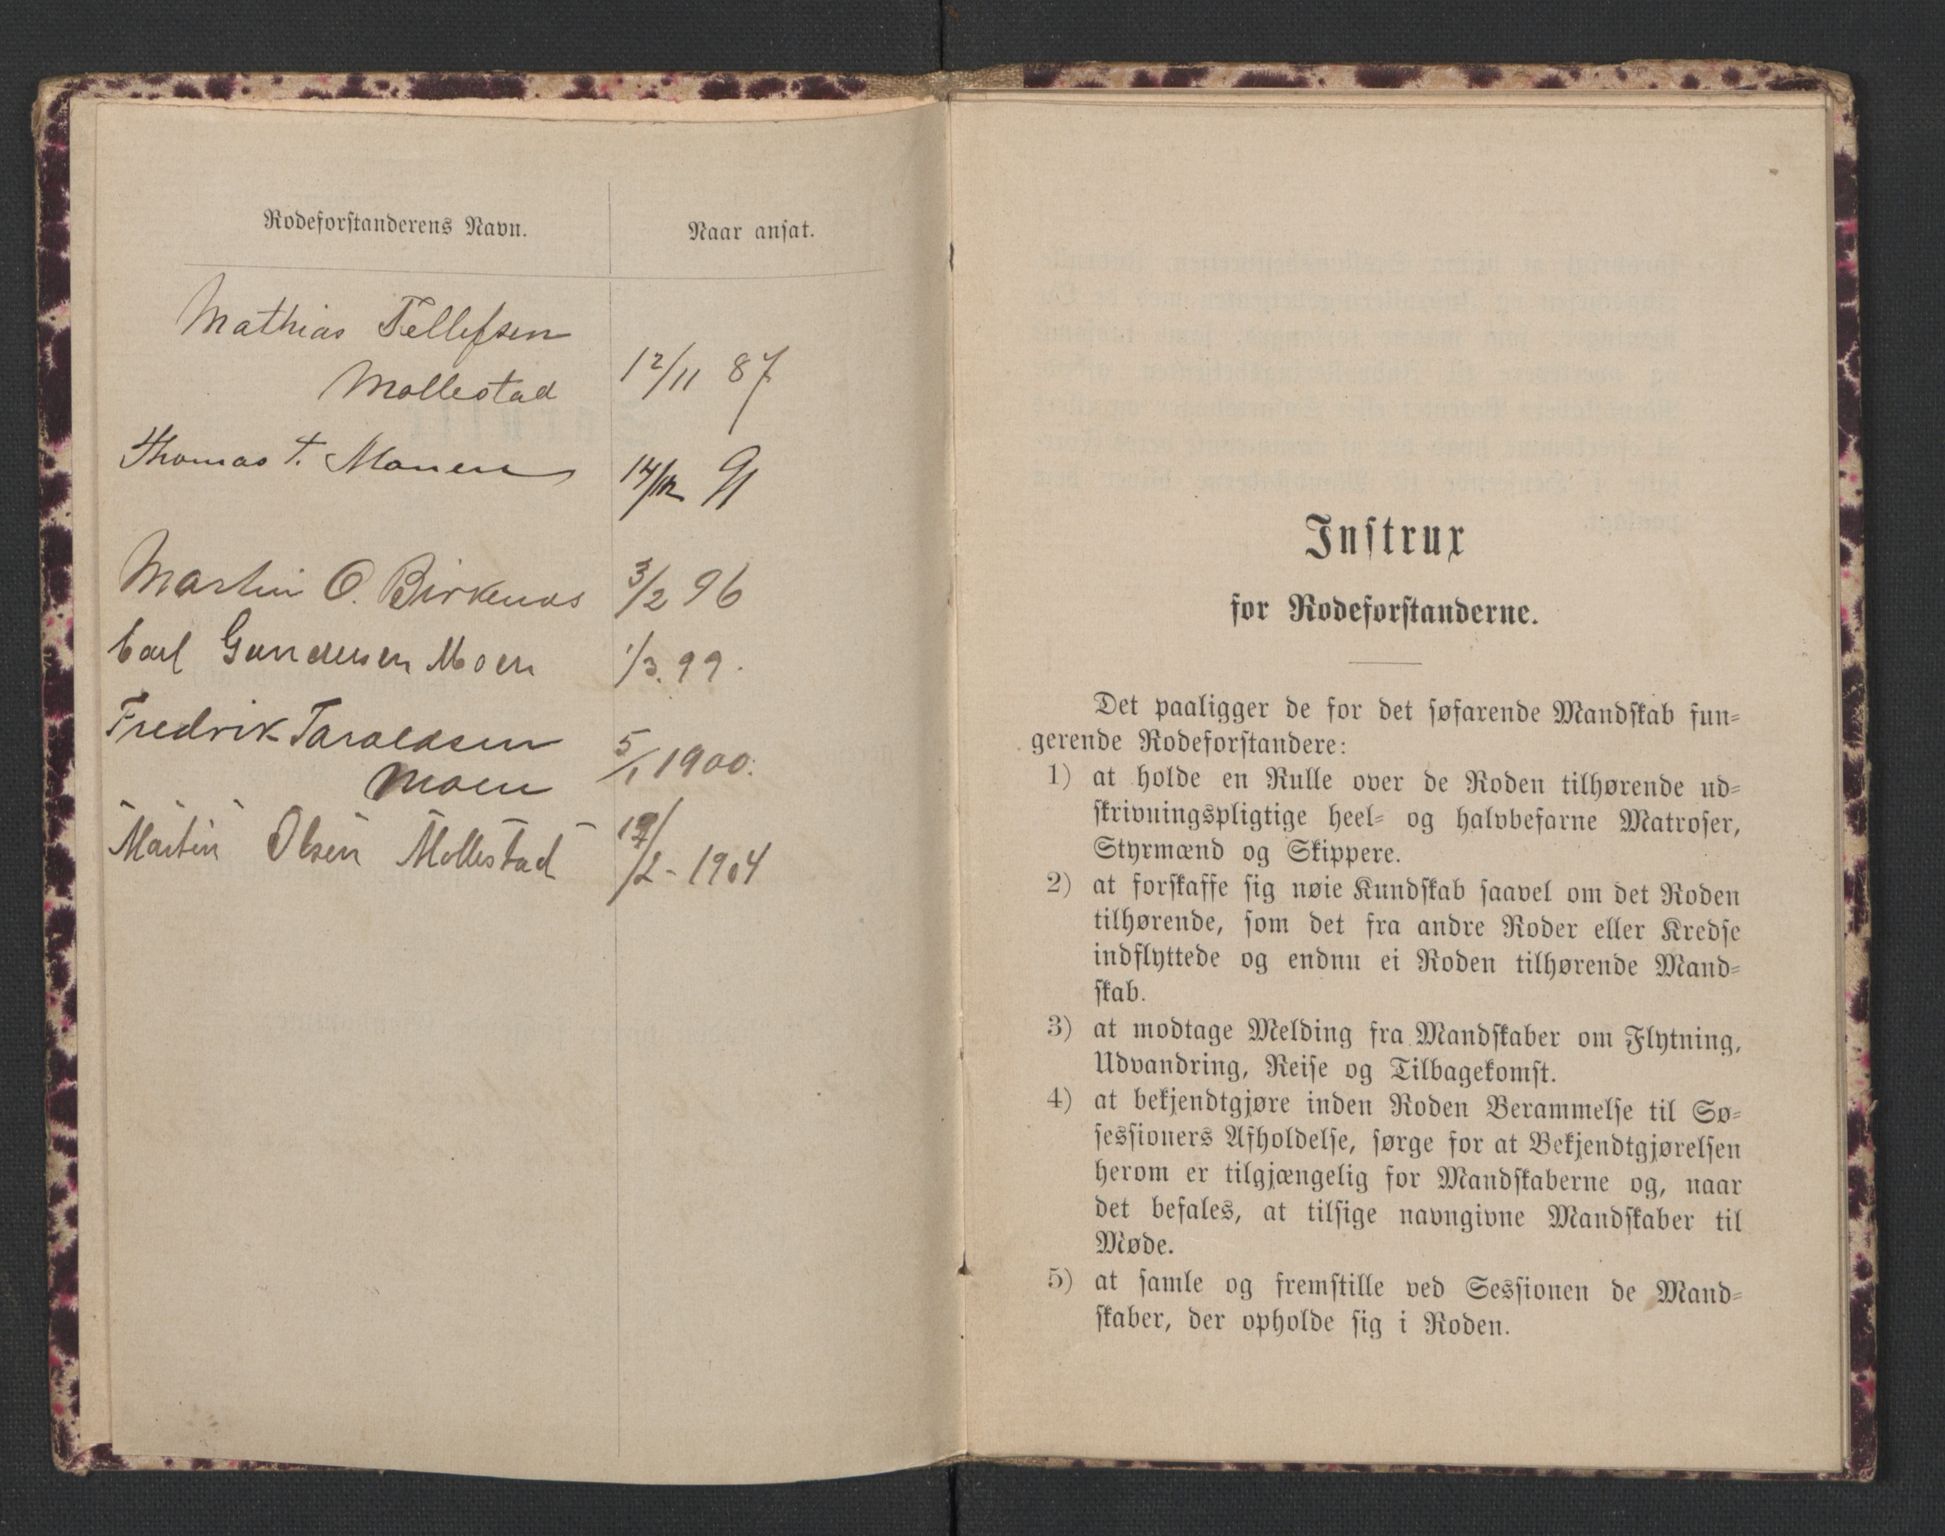 Rodeforstanderens Navn.
Naar ansat.
Mathias Tellefsen
Mollestad
12/11 87
Thomas T. Monen
14/12 91
Martin O. Birkenæs
3/2 96
Carl Gundersen Moen
1/3. 99.
Fredrik Taraldsen
Moen
5/1 1900.
Martin Olsen Mollestad
/2 - 1904
Instrux
for Rodeforstanderne.
Det paaligger de for det søfarende Mandskab fun-
gerende Rodeforstandere:
1) at holde en Rulle over de Roden tilhørende ud-
skrivningspligtige heel- og halvbefarne Matroser,
Styrmænd og Skippere.
2) at forskaffe sig nøie Kundskab saavel om det Roden
tilhørende, som det fra andre Roder eller Kredse
indflyttede og endnu ei Roden tilhørende Mand-
skab.
3) at modtage Melding fra Mandskaber om Flytning,
Udvandring, Reise og Tilbagekomst.
4) at bekjendtgjøre inden Roden Berammelse til Sø-
sessioners Afholdelse, sørge for at Bekjendtgjørelsen
herom er tilgjængelig for Mandskaberne og, naar
det befales, at tilsige navngivne Mandskaber til
Møde.
5) at samle og fremstille ved Sessionen de Mand-
skaber, der opholde sig i Roden.